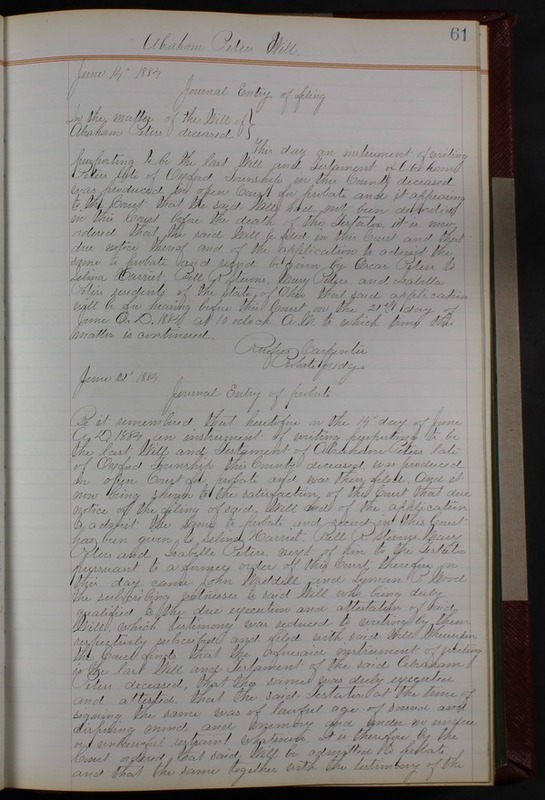 61
Abraham Peters Will.
June 14" 1884
Journal Entry of filing
In the matter of the Will of }
Abraham Peters deceased }
This day an instrument of writing
purporting to be the last Will and Testament of Abraham
Peters late of Oxford Township in this County deceased
was produced in open Court for probate and it appearing
to the Court that the said Will had not been deposited
in this Court before the death of the Testator it is now
ordered that the said Will be filed in this Court and that
due notice thereof and of the application to admit the
same to probate and record be given by Oscar Peters to
Selina Harriet, Bell R Stevens, Mary Peters, and Isabella
Peters residents of the state of Ohio that said application
will be for hearing before this Court on the 21st day of
June A.D. 1884 at 10 o'clock A.M. to which time this
matter is continued.
Rufus Carpenter
Probate Judge
June 21" 1884
Journal Entry of probate
Be it remembered that heretofore on the 14" day of June
A.D. 1884 an instrument of writing purporting to be
the last Will and Testament of Abraham Peters late
of Oxford Township this County deceased was produced
in open Court for probate and was then filed, and it
now being shown to the satisfaction of the Court that due
notice of the filing of said Will and of the application
to admit the same to probate and record in this Court
has been given to Selina Harriet, Bell R Stevens Mary
Peters and Isabella Peters next of kin to the Testator
pursuant to a former order of this Court, therefore on
this day came John Waddell and Lyman P Wood
the subscribing witnesses to said Will who being duly
qualified to the due execution and attestation of said
Will, which testimony was reduced to writing by them
respectively subscribed and filed with said Will Whereupon
the Court finds that the aforesaid instrument of writing
is the last Will and Testament of the said Abraham
Peters deceased, that the same was duly executed
and attested, that the said Testator at the time of
signing the same was of lawful age of sound and
disposing mind and memory and under no undue
or unlawful restraint whatever It is therefore by the
Court ordered that said Will be admitted to probate,
and that the same together with the testimony of the